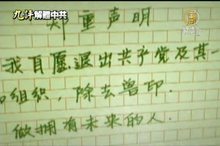 九评 解體中共
新唐人
郑重声明
我自愿退出共产党及其
组织，除去兽印．
做拥有未来的人．